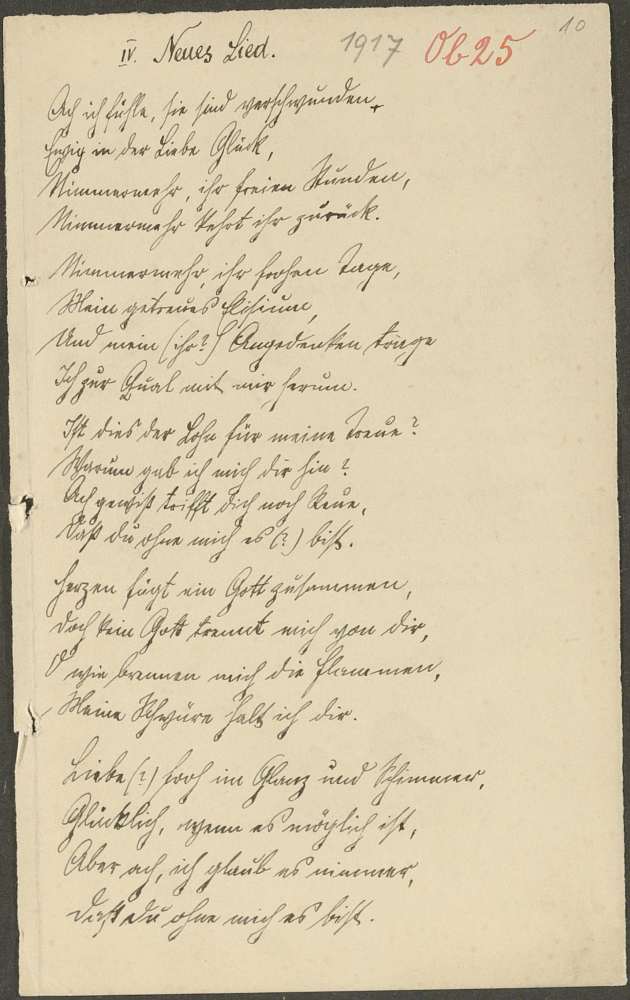 IV. Neues Lied. 1917 Ob25 10
Ach ich fühle, sie sind verschwunden,
Ewig in der Liebe Glück,
Nimmermehr, ihr freien Stunden,
Nimmermehr kehrt ihr zurück.
Nimmermehr, ihr frohen Tage,
Mein getreues Elisium,
Und mein (ihr?) Angedenken trage
Ich zur Qual mit mir herum.
Ist dies der Lohn für meine Treue?
Warum gab ich mich dir hin?
Ach gewiß trifft dich noch Reue,
Daß du ohne mich es (?) bist.
Herzen fügt ein Gott zusammen,
Doch kein Gott trennt mich von dir,
O wie brennen mich die Flammen,
Meine Schwüre halt ich dir.
Liebe (?) froh im Glanz und Schimmer,
Glücklich, wenn es möglich ist,
Aber ach, ich glaub es nimmer,
Daß du ohne mich es bist.